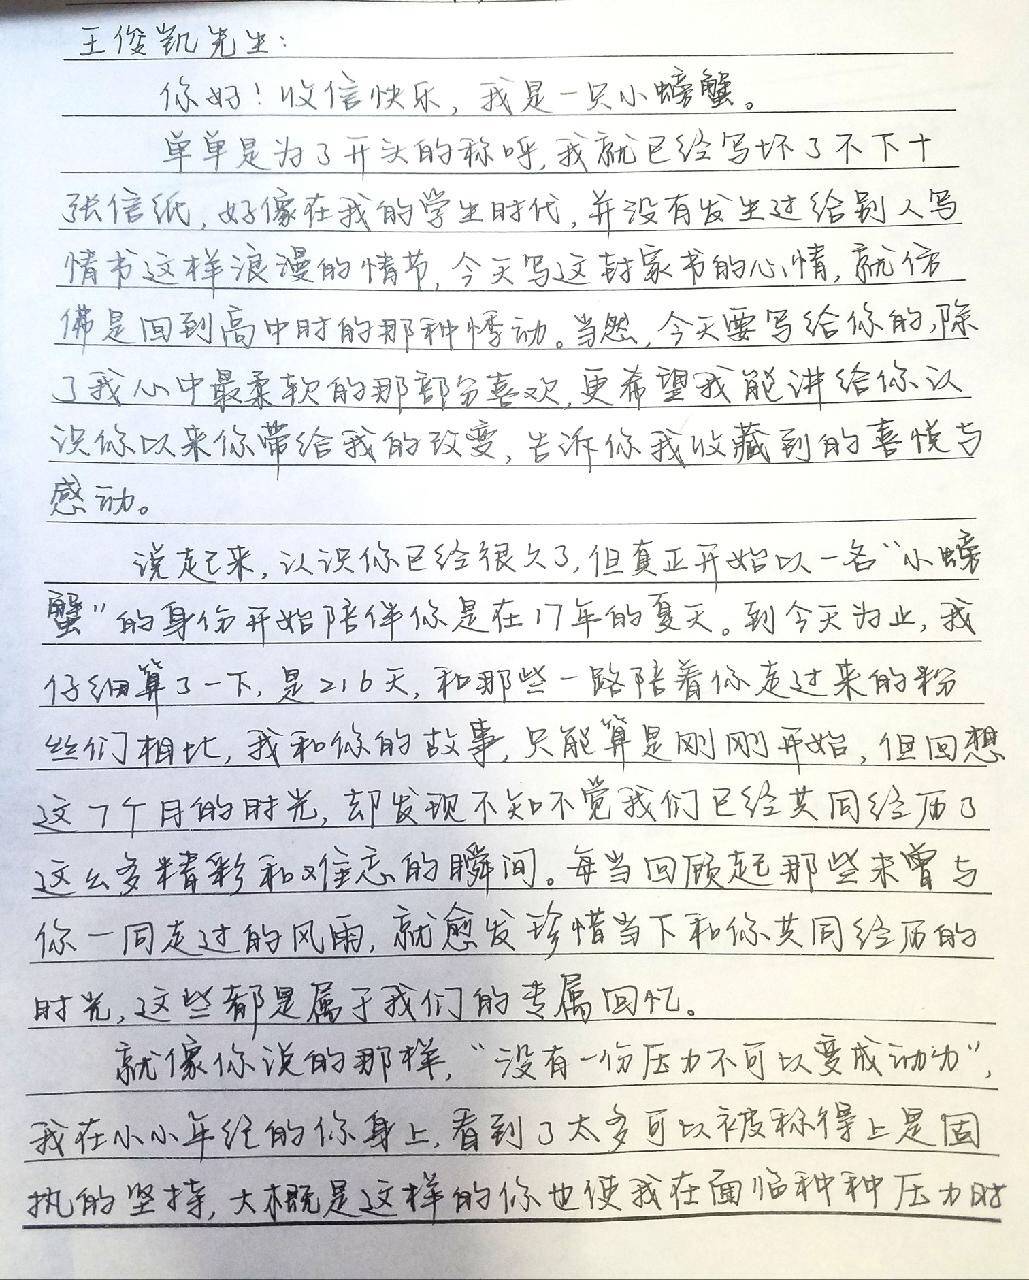 王俊凯先生：
你好！收信快乐，我是一只小螃蟹。
单单是为了开头的称呼，我就已经写坏了不下十
张信纸，好像在我的学生时代，并没有发生过给别人写
情书这样浪漫的情节，今天写这封家书的心情，就仿
佛是回到高中时的那种悸动。当然，今天要写给你的，除
了我心中最柔软的那部分喜欢，更希望我能讲给你认
识你以来你带给我的改变，告诉你我收藏到的喜悦与
感动。
说起来，认识你已经很久了，但真正开始以一名“小螃
蟹”的身份开始陪伴你是在17年的夏天。到今天为止，我
仔细算了一下，是216天，和那些一路陪着你走过来的粉
丝们相比，我和你的故事，只能算是刚刚开始，但回想
这7个月的时光，却发现不知不觉我们已经共同经历了
这么多精彩和难忘的瞬间。每当回顾起那些未曾与
你一同走过的风雨，就愈发珍惜当下和你共同经历的
时光，这些都是属于我们的专属回忆。
就像你说的那样，“没有一份压力不可以变成动力”，
我在小小年纪的你身上，看到了太多可以被称得上是固
执的坚持，大概是这样的你也使我在面临种种压力时